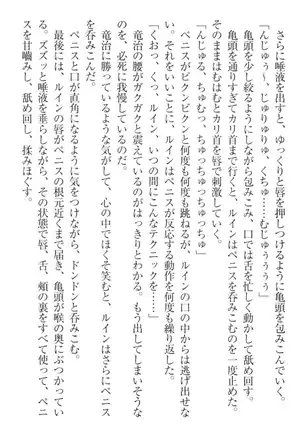 さらに唾液を出すと、ゆっくりと唇を押しつけるように亀頭を包みこんでいく。
「んじゅう～、じゅりゅりゅ、くちゅ……むじゅぅぅぅぅ」
亀頭を少し絞るようにしながら包みこみ、口では舌を忙しく動かして舐め回す。
亀頭を通りすぎてカリ首まで行くと、ルインはペニスを呑みこむのを一度止めた。
そのままはむはむとカリ首を唇で刺激していく。
「んじゅる、ちゅむっ、ちゅっちゅっちゅっちゅ」
ペニスがビクンビクンと何度も跳ねるが、ルインの口の中からは逃げ出せない。
それをいいことに、ルインはペニスが反応する動作を何度も繰り返した。
「くおっ、くっ、ルイン、いつの間にこんなテクニックを……」
竜治の腰がガクガクと震えているのがはっきりとわかる。もう出してしまいそうなのを、必死に我慢しているのだ。
竜治に勝っているような気がして、心の中でほくそ笑むと、ルインはさらにペニスを呑みこんだ。
ペニスと口が直角になるように気をつけながら、ドンドンと呑みこむ。
最後には、ルインの唇がペニスの根元近くまで届き、亀頭が喉の奥にぶつかっている。ズズッと唾液を垂らしながら、その状態で唇、舌、頬の裏をすべて使って、ペニスを甘噛みし、舐め回し、揉みほぐす。